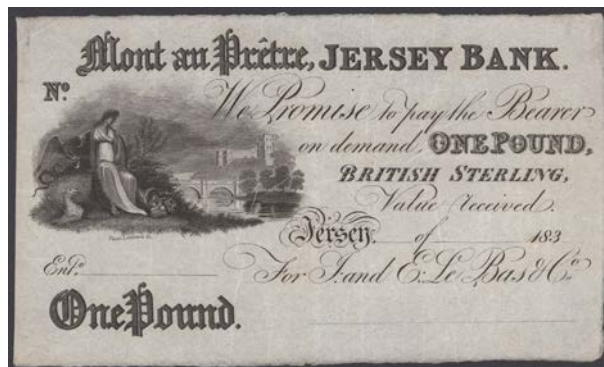 Mont au Prêtre, JERSEY BANK.
Nº
We Promise to pay the Bearer
on demand ONE POUND,
BRITISH STERLING,
Value received.
Jersey. of 183
Entd.
For J. and E. Le Bas & Co.
One Pound.